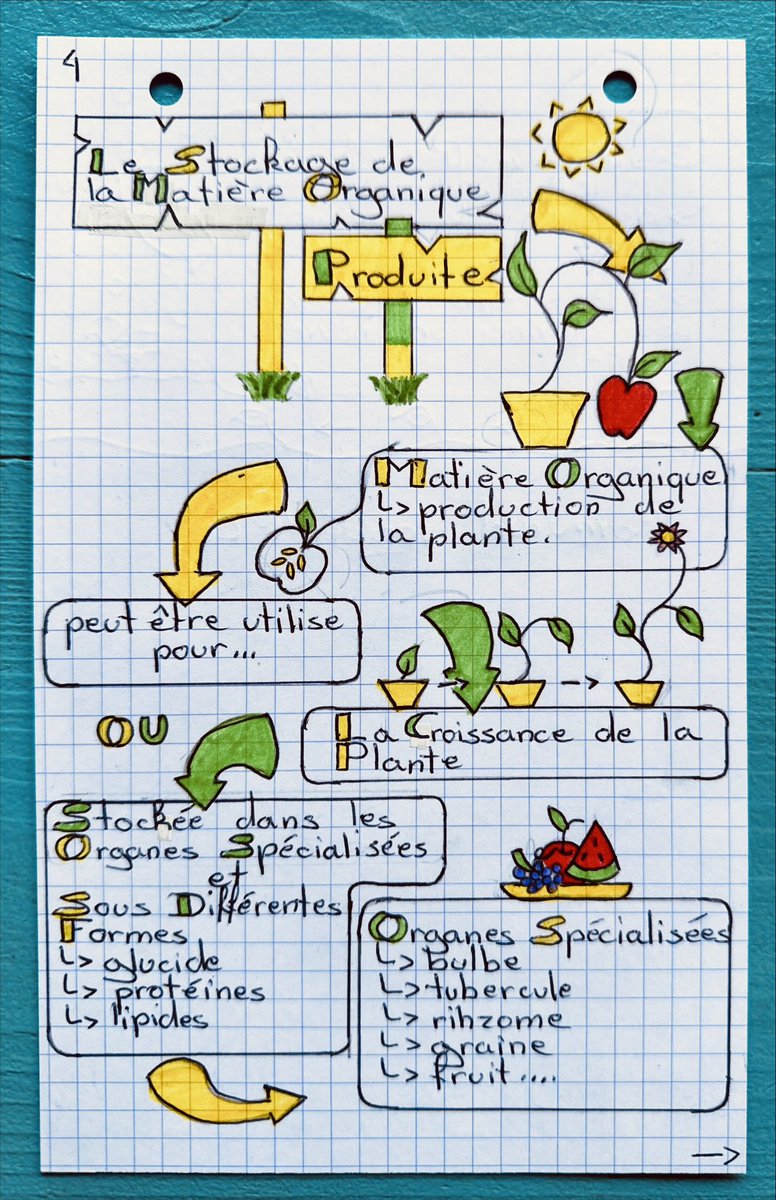 4
Le Stockage de
la Matière Organique
Produite
Matière Organique
↳ production de
la plante.
peut être utilise
pour...
La Croissance de la
Plante
OU
Stockée dans les
Organes Spécialisées
et
Sous Différentes
Formes
↳ glucide
↳ protéines
↳ lipides
Organes Spécialisées
↳ bulbe
↳ tubercule
↳ rihzome
↳ graine
↳ fruit....